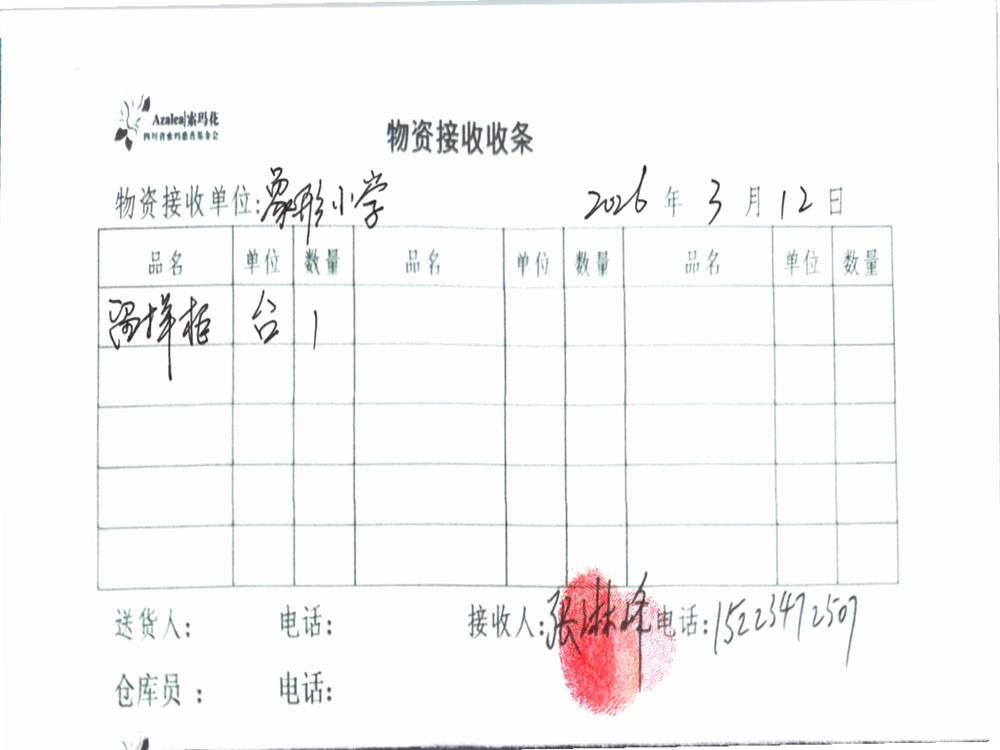 Azalea|索玛花
四川省索玛慈善基金会
物资接收收条
物资接收单位:象形小学 2026 年 3 月 12 日
品名 单位 数量 品名 单位 数量 品名 单位 数量
留样柜 台 1
送货人: 电话: 接收人:张 电话:15223472507
仓库员: 电话: